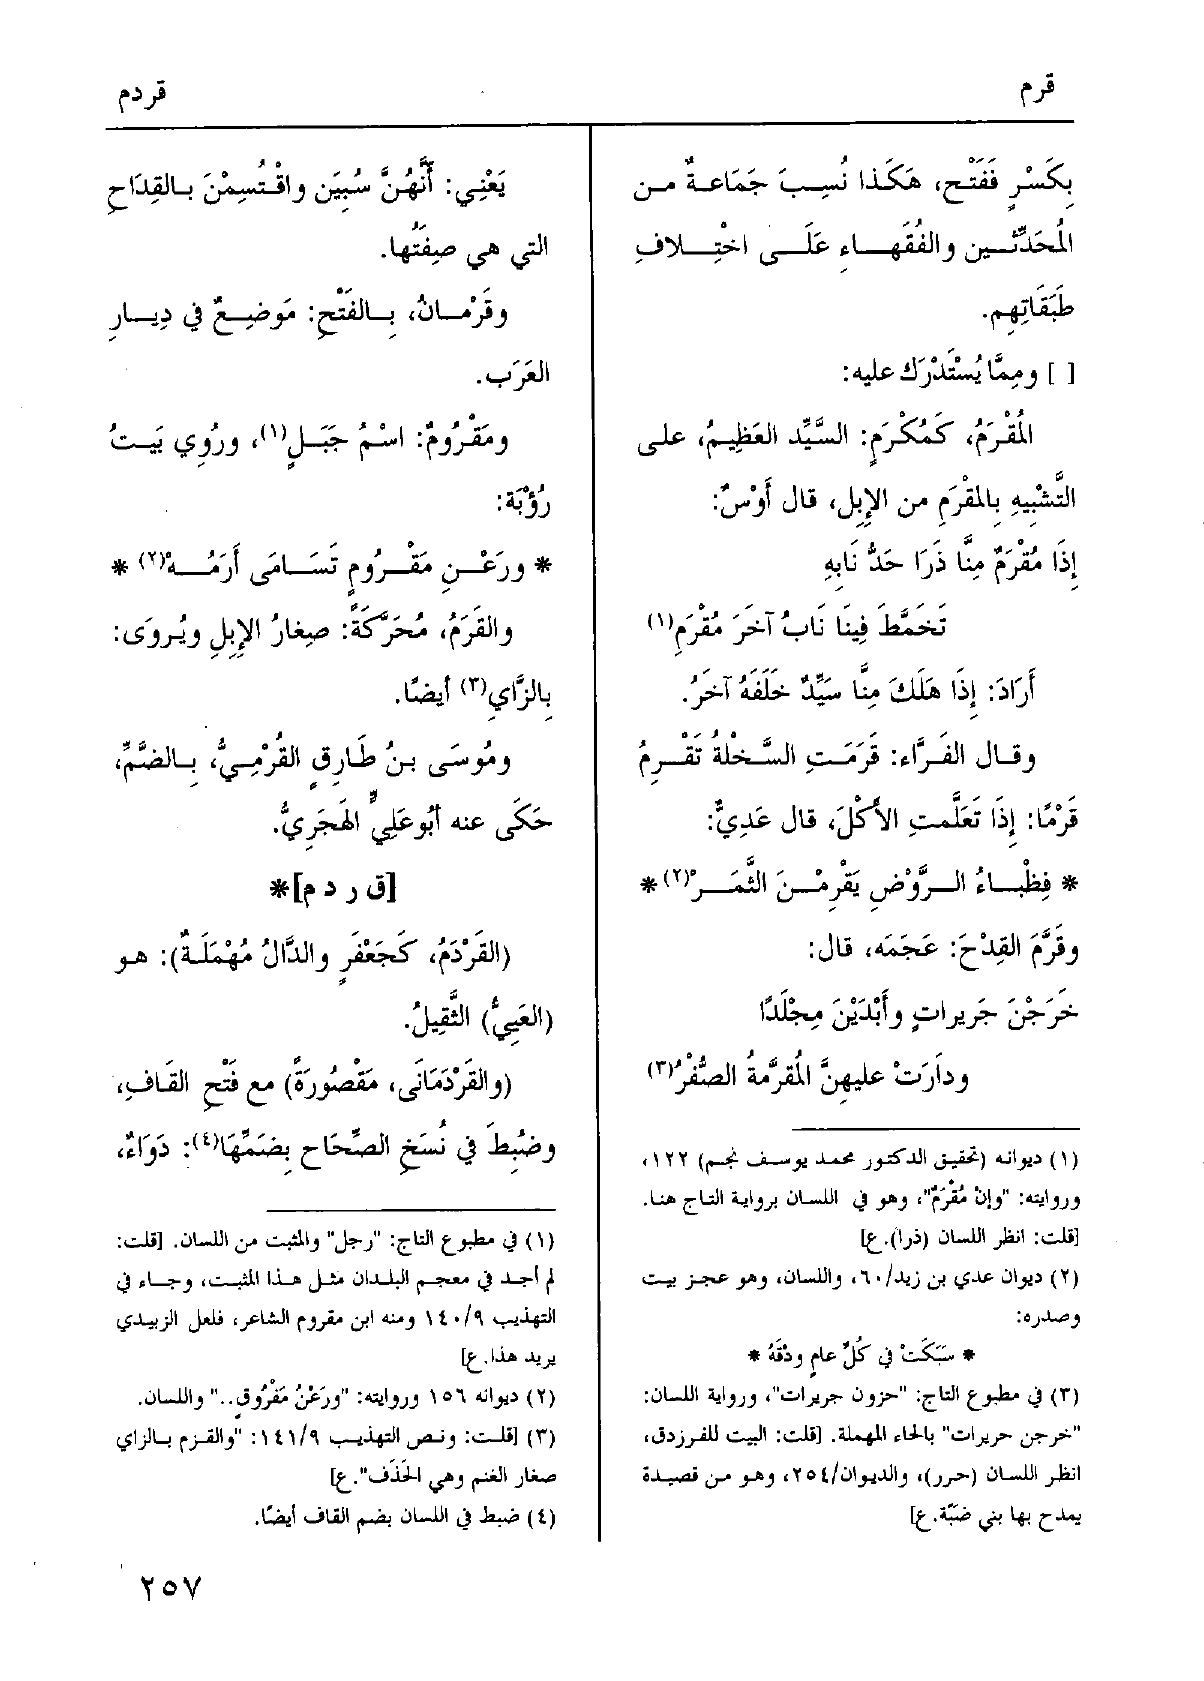 قرم
قردم
بِكَسْرٍ فَفَتْح، هَكَذا نُسِبَ جَمَاعةٌ من
المُحَدِّثين والفُقَهاءِ عَلَى اخْتِلافِ
طَبَقَاتِهم.
[ ] ومِمَّا يُسْتَدْرَك عليه:
المُقْرَمُ، كَمُكْرَمٍ: السَّيِّد العَظِيمُ، على
التَّشْبِيهِ بِالمقْرَمِ من الإِبل، قال أَوْسٌ:
إِذَا مُقْرَمٌ مِنَّا ذَرَا حَدُّ نَابِهِ
تَخَمَّطَ فِينَا نَابُ آخَرَ مُقْرَمِ(١)
أَرَادَ: إِذَا هَلَكَ مِنَّا سَيِّدٌ خَلَفَهُ آخَرُ.
وقال الفَرَّاء: قَرَمَتِ السَّخْلَةُ تَقْرِمُ
قَرْمًا: إِذَا تَعَلَّمتِ الأَكْلَ، قال عَدِيٌّ:
* فِظْبَاءُ الرَّوْضِ يَقْرِمْنَ الثَّمَرْ(٢) *
وقَرَّمَ القِدْحَ: عَجَمَه، قال:
خَرَجْنَ جَرِيراتٍ وأَبْدَيْنَ مِجْلَدًا
ودَارَتْ عليهنَّ المُقَرَّمَةُ الصُّفْرُ(٣)
(١) ديوانه (تحقيق الدكتور محمد يوسف نجم) ١٢٢،
وروايته: "وإنْ مُقْرَمٌ"، وهو في اللسان برواية التاج هنا.
[قلت: انظر اللسان (ذرا). ع]
(٢) ديوان عدي بن زيد/٦٠، واللسان، وهو عجز بيت
وصدره:
* سَبَكَتْ في كُلِّ عامٍ ودْقَهُ *
(٣) في مطبوع التاج: "حزون جريرات"، ورواية اللسان:
"خرجن حريرات" بالحاء المهملة. [قلت: البيت للفرزدق،
انظر اللسان (حرر)، والديوان/٢٥٤، وهو من قصيدة
يمدح بها بني ضبّة. ع]
يَعْنِي: أَنَّهُنَّ سُبِيَن واقْتُسِمْنَ بالقِدَاحِ
التي هي صِفَتُها.
وقَرْمانُ، بِالفَتْحِ: مَوْضِعٌ في دِيارِ
العَرَب.
ومَقْرُومٌ: اسْمُ جَبَلٍ(١)، ورُوِي بَيتُ
رُؤْبَة:
* ورَعْنِ مَقْرُومٍ تَسَامَى أَرَمُهْ(٢) *
والقَرَمُ، مُحَرَّكَةً: صِغارُ الإِبِلِ ويُروَى:
بِالزَّايِ(٣) أيضًا.
ومُوسَى بنُ طَارِقٍ القُرْمِيُّ، بالضَّمِّ،
حَكَى عنه أَبُو عَلِيٍّ الهَجَرِيُّ.
[ق ر د م]*
(القَرْدَمُ، كَجَعْفَرٍ والدَّالُ مُهْمَلَةٌ): هو
(العَيِيُّ) الثَّقِيلُ.
(والقَرْدَمَانَى، مَقْصُورَةً) مع فَتْحِ القَافِ،
وضُبِطَ في نُسَخِ الصِّحَاح بِضَمِّهَا(٤): دَوَاءٌ،
(١) في مطبوع التاج: "رجل" والمثبت من اللسان. [قلت:
لم أجد في معجم البلدان مثل هذا المثبت، وجاء في
التهذيب ١٤٠/٩ ومنه ابن مقروم الشاعر، فلعل الزبيدي
يريد هذا. ع]
(٢) ديوانه ١٥٦ وروايته: "ورَعْنُ مَفْرُوقٍ.." واللسان.
(٣) [قلت: ونص التهذيب ١٤١/٩: "والقزم بالزاي
صغار الغنم وهي الحَذَف". ع]
(٤) ضبط في اللسان بضم القاف أيضًا.
٢٥٧